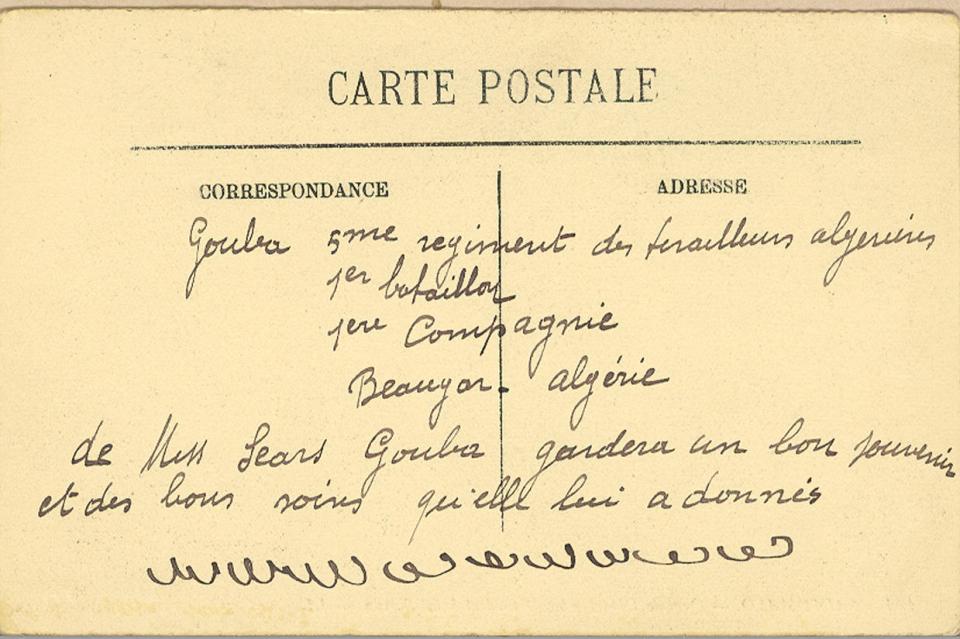 CARTE POSTALE
CORRESPONDANCE
ADRESSE
Gouba 5me regiment des tirailleurs algeriéns
1er bataillon
1ere Compagnie
Beaugar. algérie
de Miss Sears Gouba gardera un bon souvenir
et des bons soins qu'elle lui a donnés